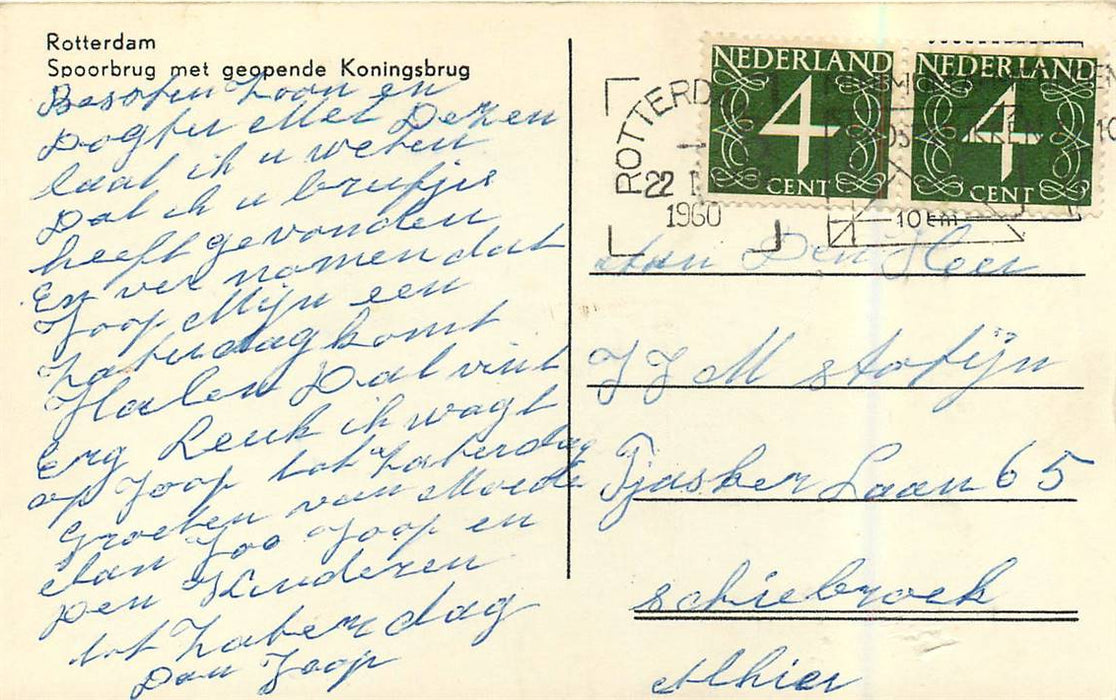 Rotterdam
Spoorbrug met geopende Koningsbrug
Besten Zoon en
Dogter Met Dezen
laat ik u weten
Dat ik u briefje
heeft gevonden
En ver nomen dat
Joop Mijn een
Zaterdag komt
Halen Dat vint
Erg Leuk ik wagt
op Joop tot Zaterdag
groeten van Moeder
Aan Joo Joop en
Den Kinderen
tot Zaterdag
Dan Joop
NEDERLAND
4
CENT
NEDERLAND
4
CENT
ROTTERD
22
1960
10 cm
Aan Den Heer
J J M Stofijn
Tjasker Laan 65
schiebroek
Alhier